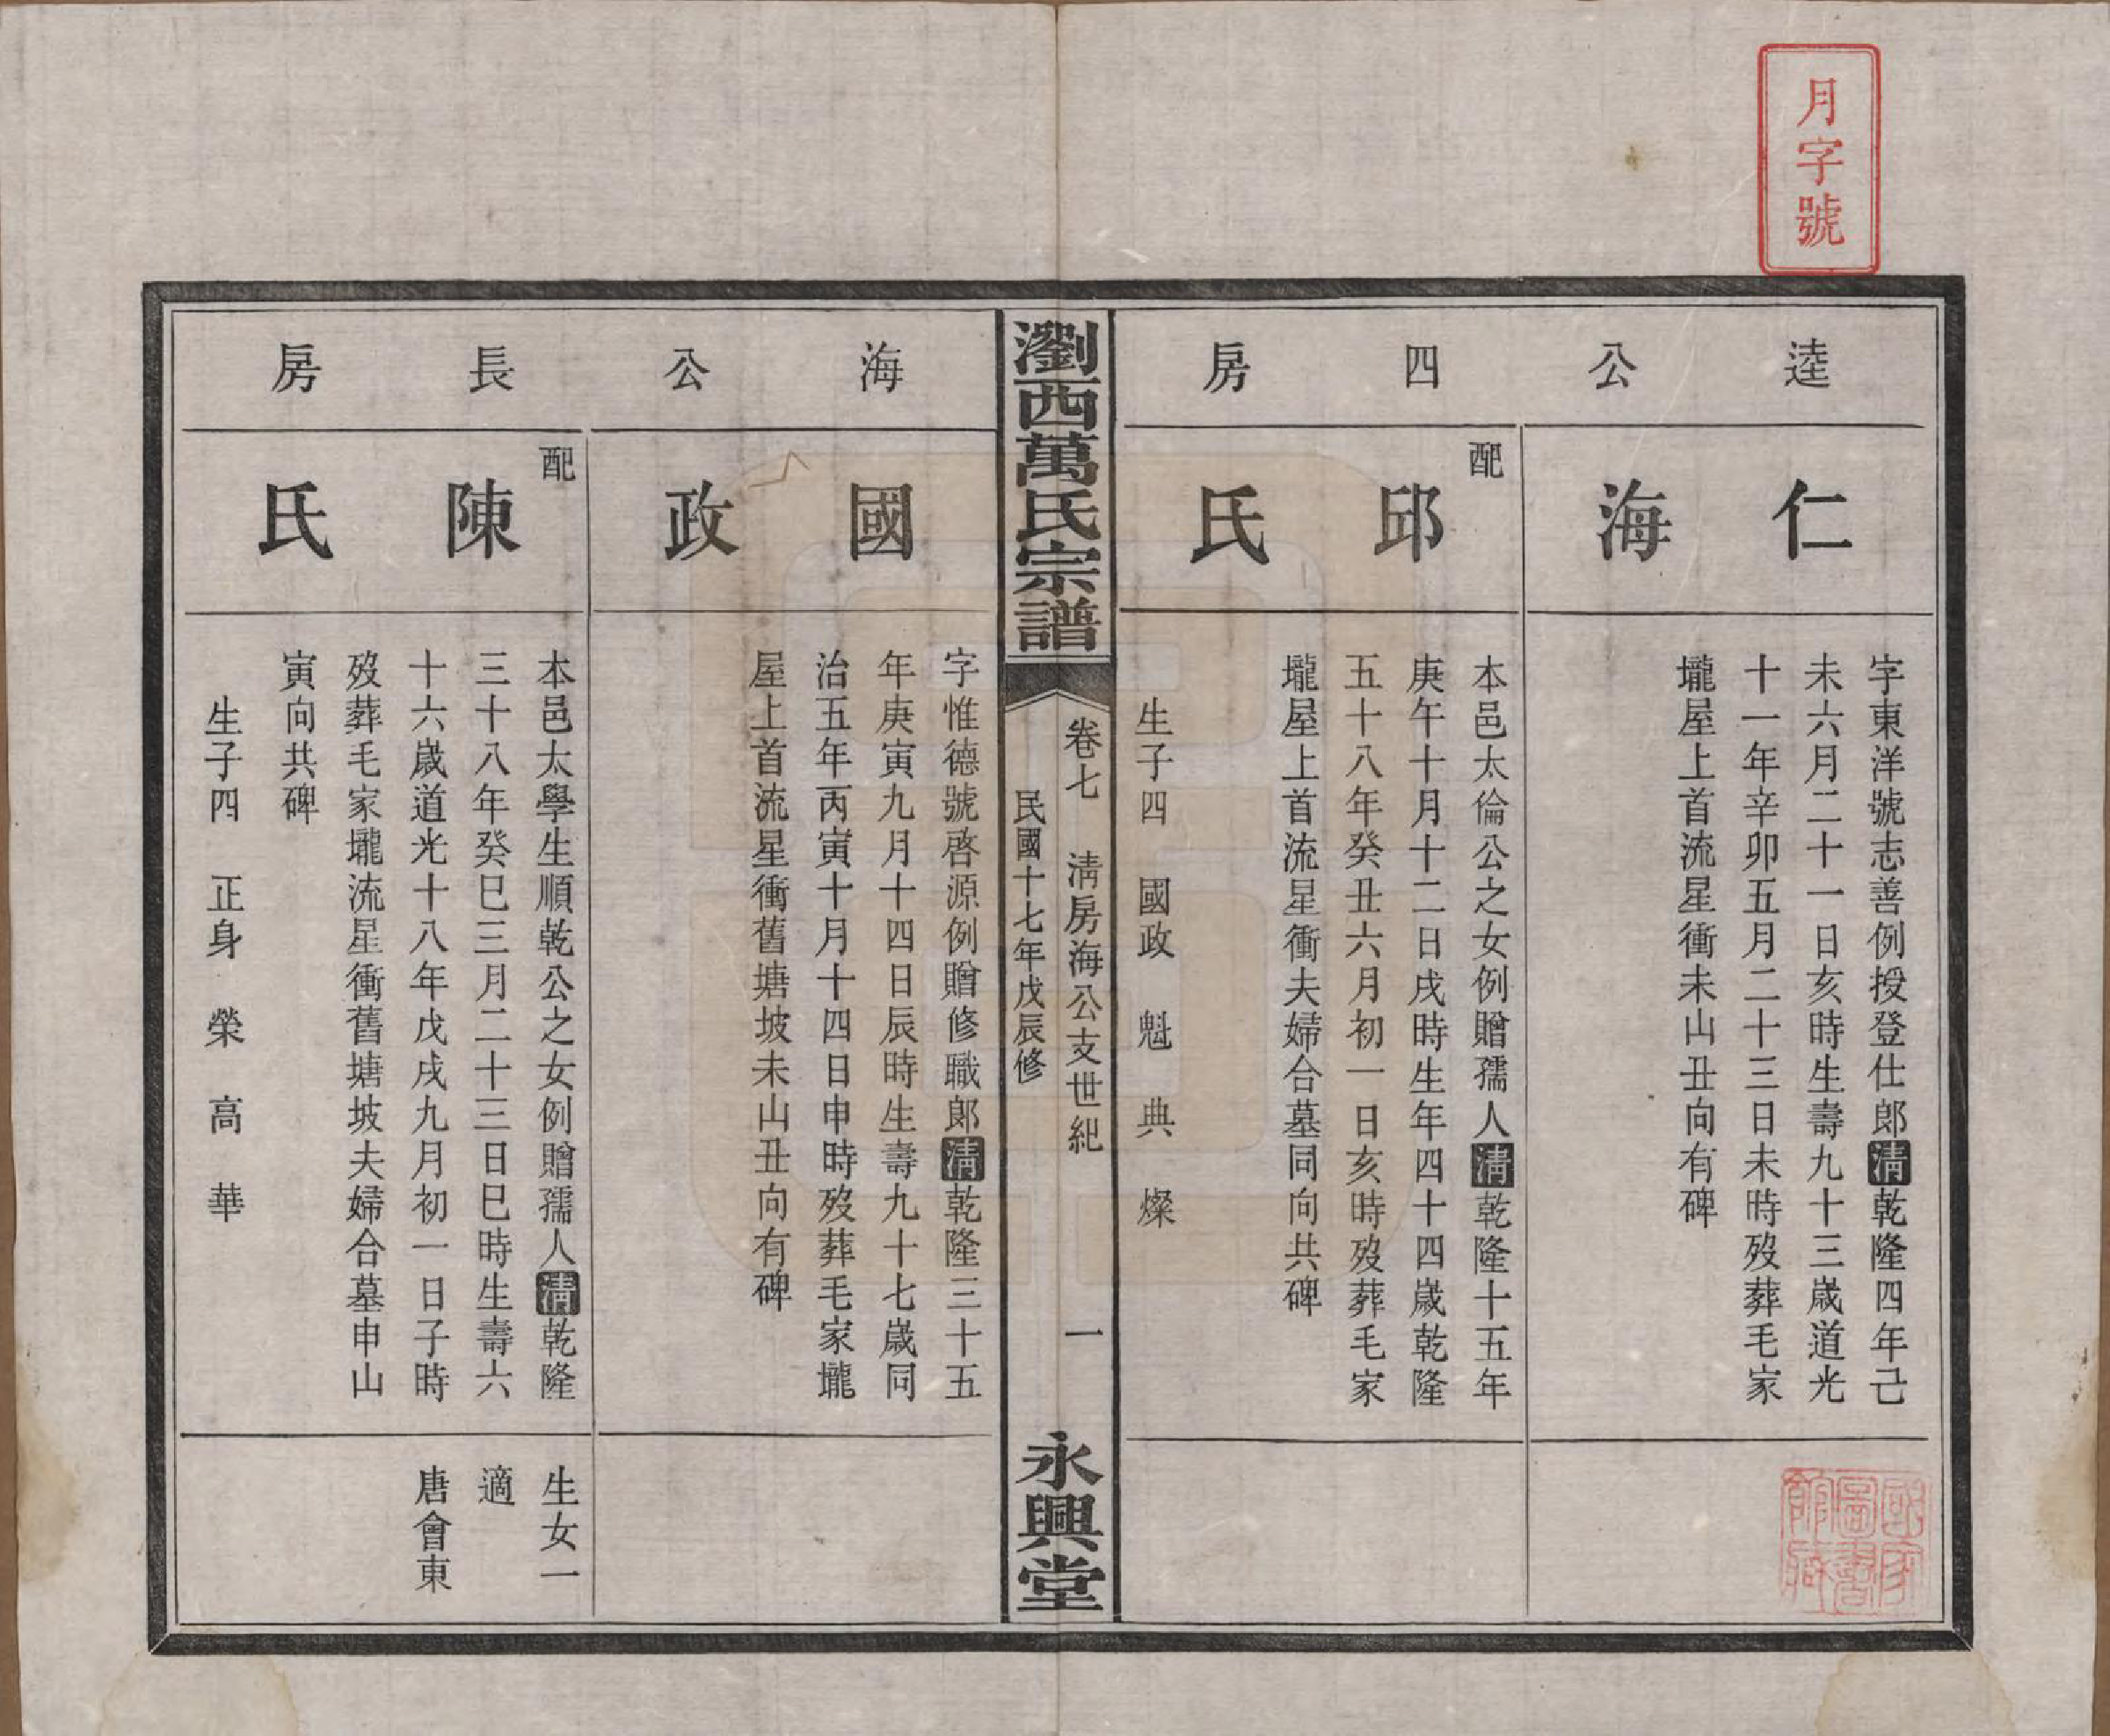 月字號
逵公四房
仁海
字東洋號志善例授登仕郎清乾隆四年己
未六月二十一日亥時生壽九十三歲道光
十一年辛卯五月二十三日未時歿葬毛家
壠屋上首流星衝未山丑向有碑
國家圖書館藏
配
邱氏
本邑太倫公之女例贈孺人清乾隆十五年
庚午十月十二日戌時生年四十四歲乾隆
五十八年癸丑六月初一日亥時歿葬毛家
壠屋上首流星衝夫婦合墓同向共碑
生子四 國政 魁 典 燦
瀏西萬氏宗譜
卷七 清房海公支世紀 一
民國十七年戊辰修
永興堂
海公長房
國政
字惟德號啓源例贈修職郎清乾隆三十五
年庚寅九月十四日辰時生壽九十七歲同
治五年丙寅十月十四日申時歿葬毛家壠
屋上首流星衝舊塘坡未山丑向有碑
配
陳氏
本邑太學生順乾公之女例贈孺人清乾隆
三十八年癸巳三月二十三日巳時生壽六
十六歲道光十八年戊戌九月初一日子時
歿葬毛家壠流星衝舊塘坡夫婦合墓申山
寅向共碑
生子四 正身 榮 高 華
生女一
適
唐會東